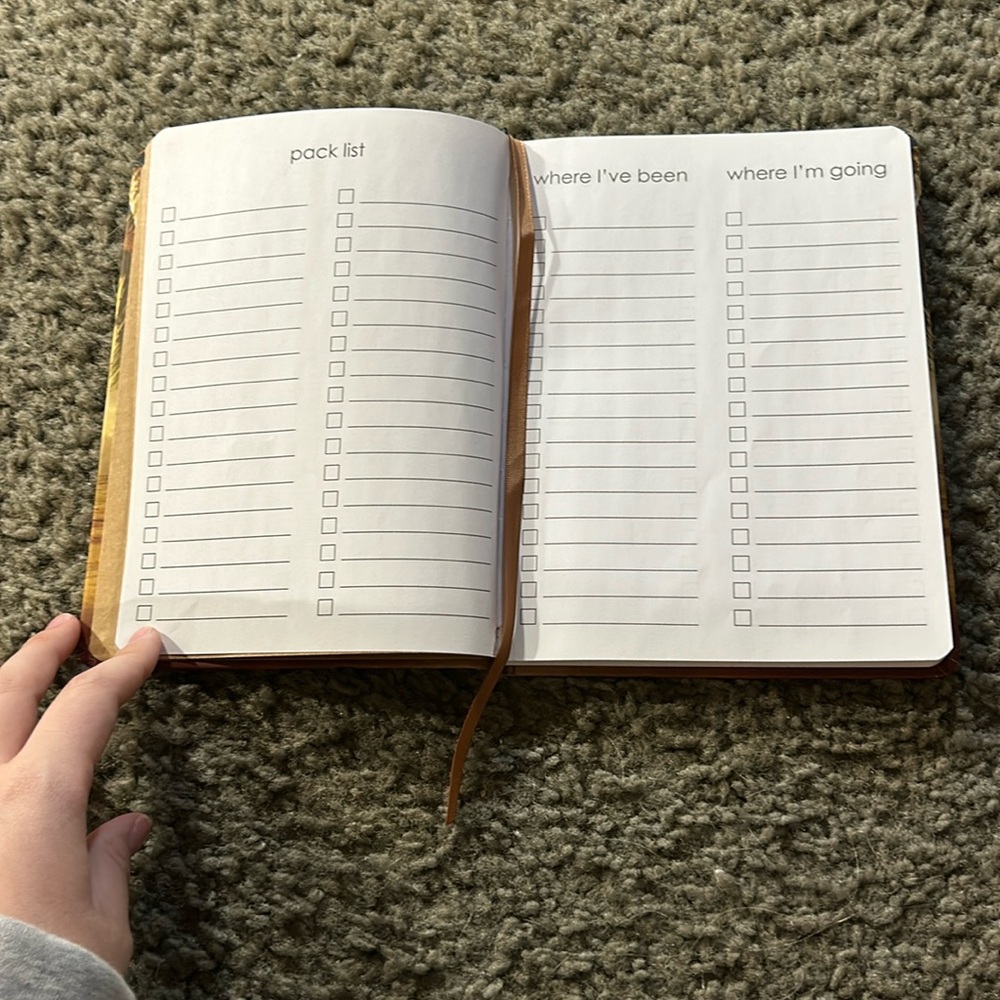 pack list
where I've been
where I'm going